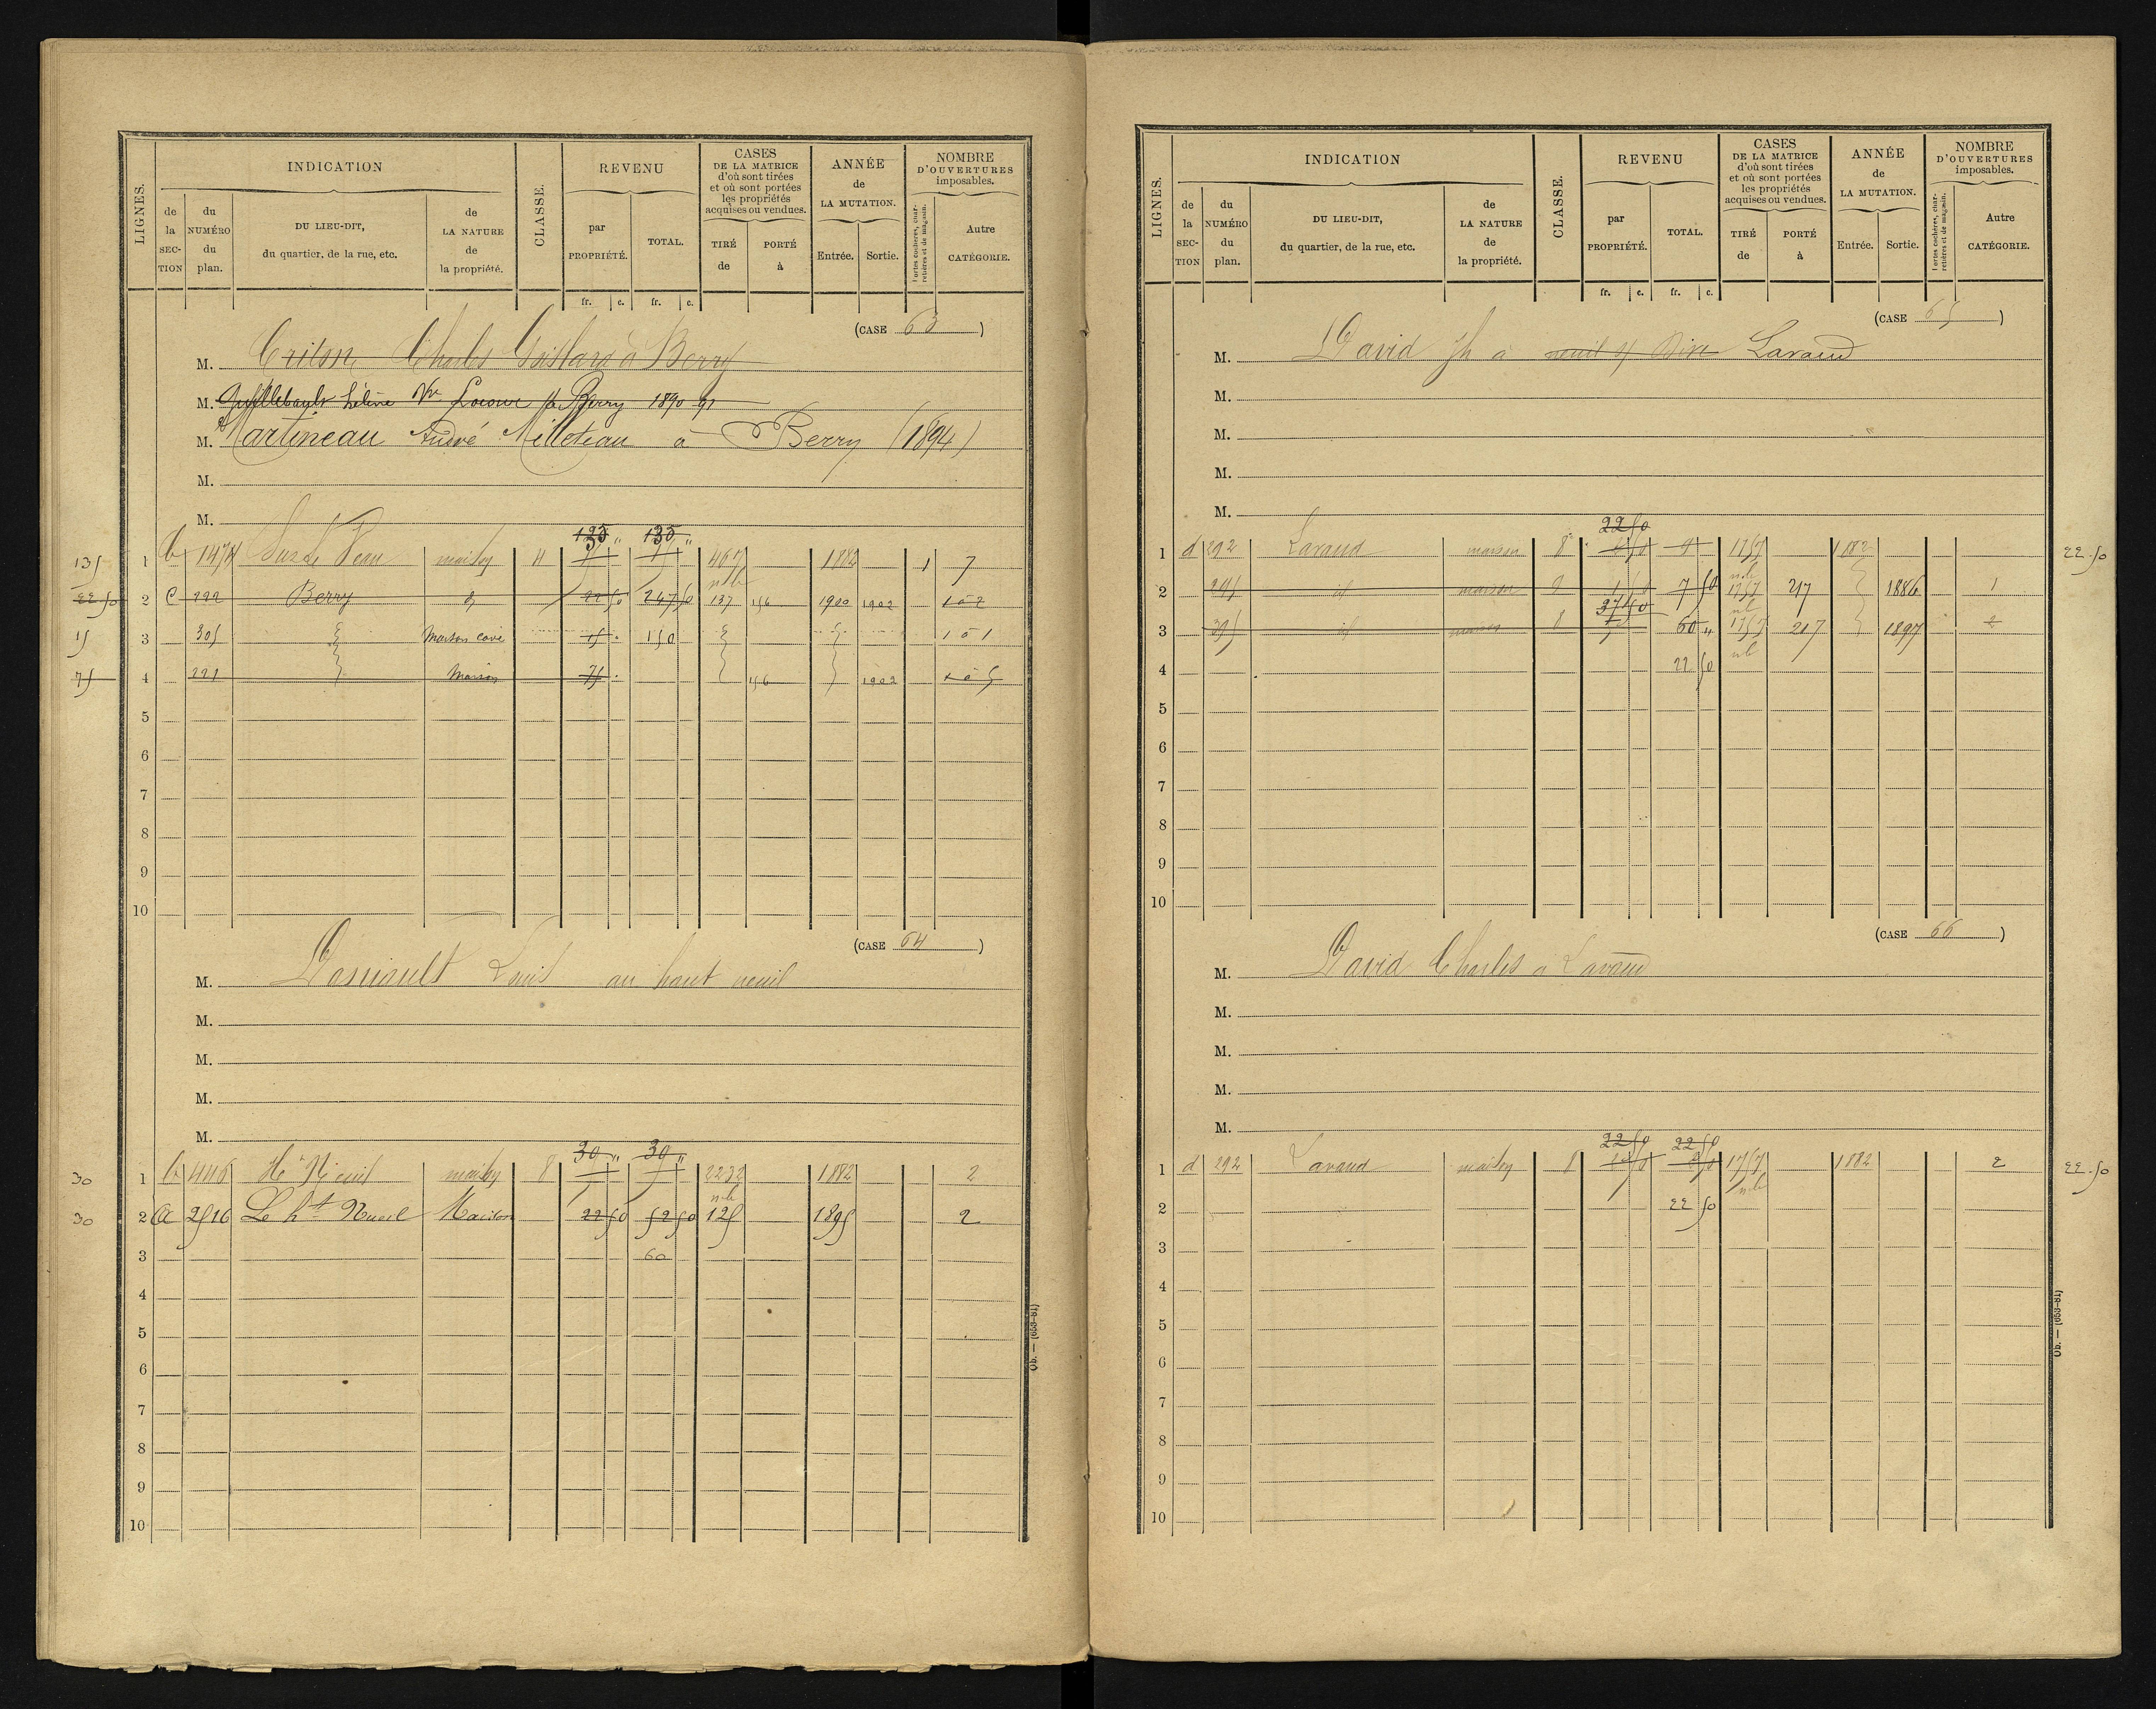 LIGNES.
INDICATION
de la SECTION
du NUMÉRO du plan.
DU LIEU-DIT, du quartier, de la rue, etc.
de LA NATURE de la propriété.
CLASSE.
REVENU
par PROPRIÉTÉ.
TOTAL.
CASES DE LA MATRICE d'où sont tirées et où sont portées les propriétés acquises ou vendues.
TIRÉ de
PORTÉ à
ANNÉE de LA MUTATION.
Entrée.
Sortie.
NOMBRE D'OUVERTURES imposables.
Portes cochères, charretières et de magasin.
Autre CATÉGORIE.
fr. c. fr. c.
(CASE 63)
M. Charles à Berry
M. Vve Berry 1890-91
M. Martineau André Milleteau à Berry (1894)
M.
M.
135 1 b 1474 maison 4 1882 1 7
22 50 2 C 222 Berry d 22 50 247 50 137 156 1900 1902 1 à 2
15 3 305 Maison cave 15 150 1 à 1
75 4 221 Maison 75 156 1902 1 à 5
5
6
7
8
9
10
(CASE 64)
M. Louis au haut neuil
M.
M.
M.
M.
30 " 30 "
30 1 b 446 maison 8 2232 1882 2
30 2 a 2516 Le ht Nueil Maison 22 50 52 50 125 1895 2
3 60
4
5
6
7
8
9
10
Ob. — (653-81)
LIGNES.
INDICATION
de la SECTION
du NUMÉRO du plan.
DU LIEU-DIT, du quartier, de la rue, etc.
de LA NATURE de la propriété.
CLASSE.
REVENU
par PROPRIÉTÉ.
TOTAL.
CASES DE LA MATRICE d'où sont tirées et où sont portées les propriétés acquises ou vendues.
TIRÉ de
PORTÉ à
ANNÉE de LA MUTATION.
Entrée.
Sortie.
NOMBRE D'OUVERTURES imposables.
Portes cochères, charretières et de magasin.
Autre CATÉGORIE.
fr. c. fr. c.
(CASE 65)
M. David Jh à Lavaud
M.
M.
M.
M.
22 50
1 d 292 Lavaud maison 8 1757 1882 22.50
2 id maison 8 7 50 1757 217 1886 1
37 50
3 id maison 8 60 " 1757 217 1897 2
4 22 50
5
6
7
8
9
10
(CASE 66)
M. David Charles à Lavaud
M.
M.
M.
M.
22 50 22 50
1 d 292 Lavaud maison 8 1757 1882 2 22.50
2 22 50
3
4
5
6
7
8
9
10
Ob. — (653-81)